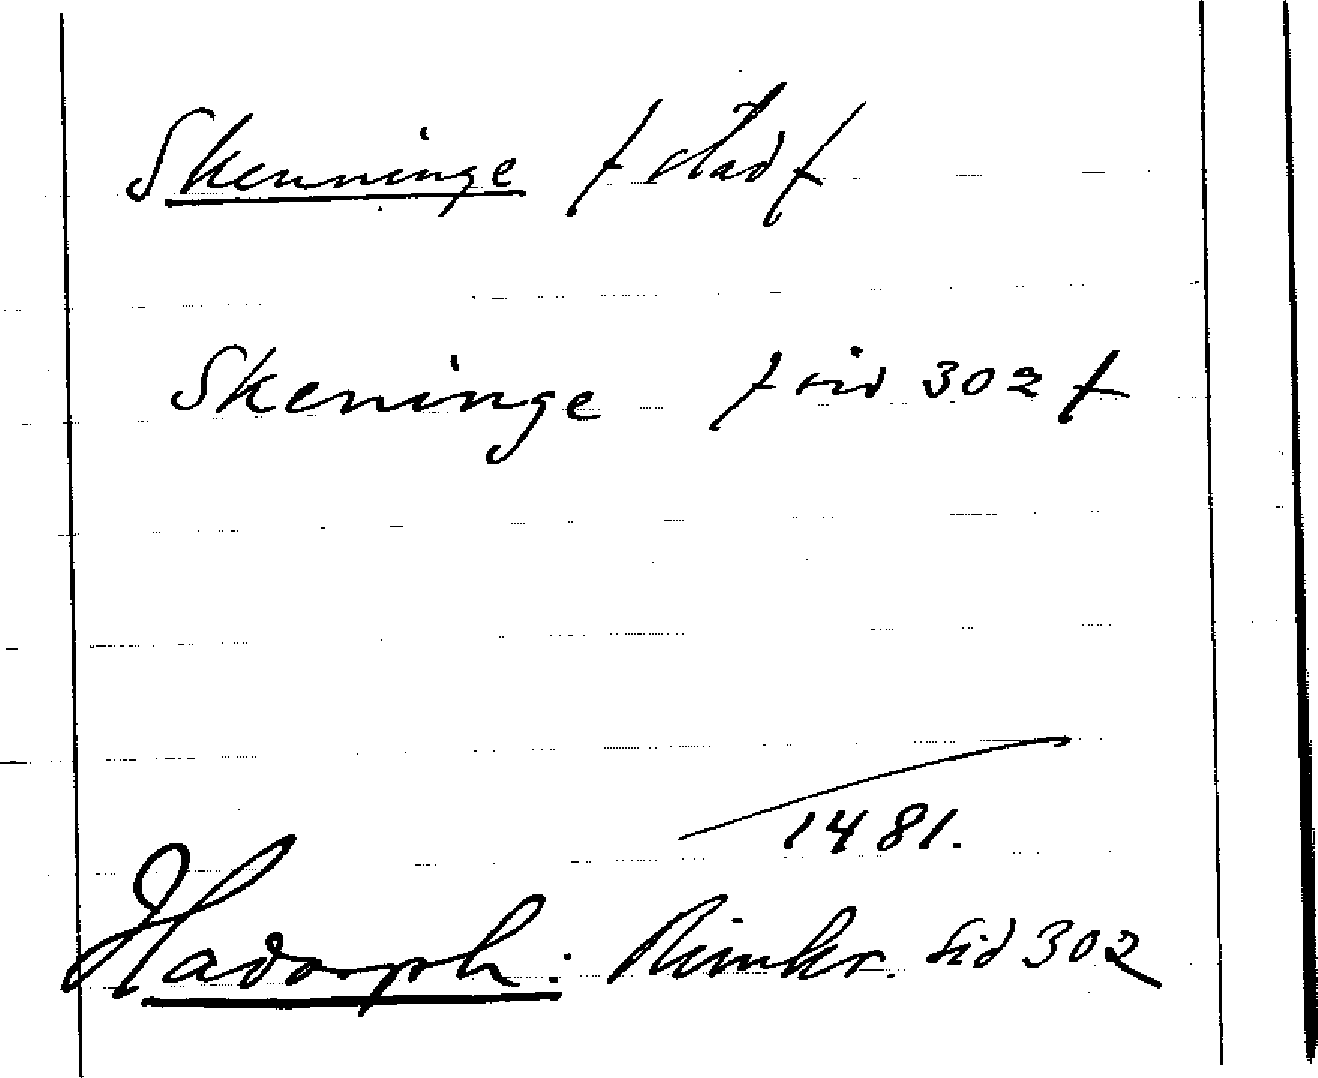 Skenninge / stad /
Skeninge / sid 302 /
1481.
Hadorph: Rimkr. sid 302